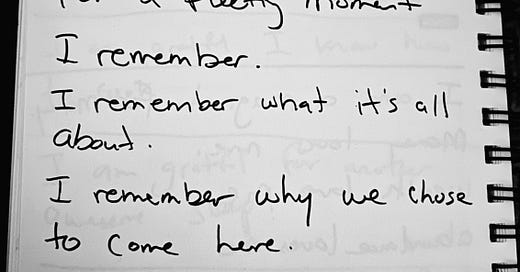 for a fleeting moment
I remember.
I remember what it's all
about.
I remember why we chose
to come here.